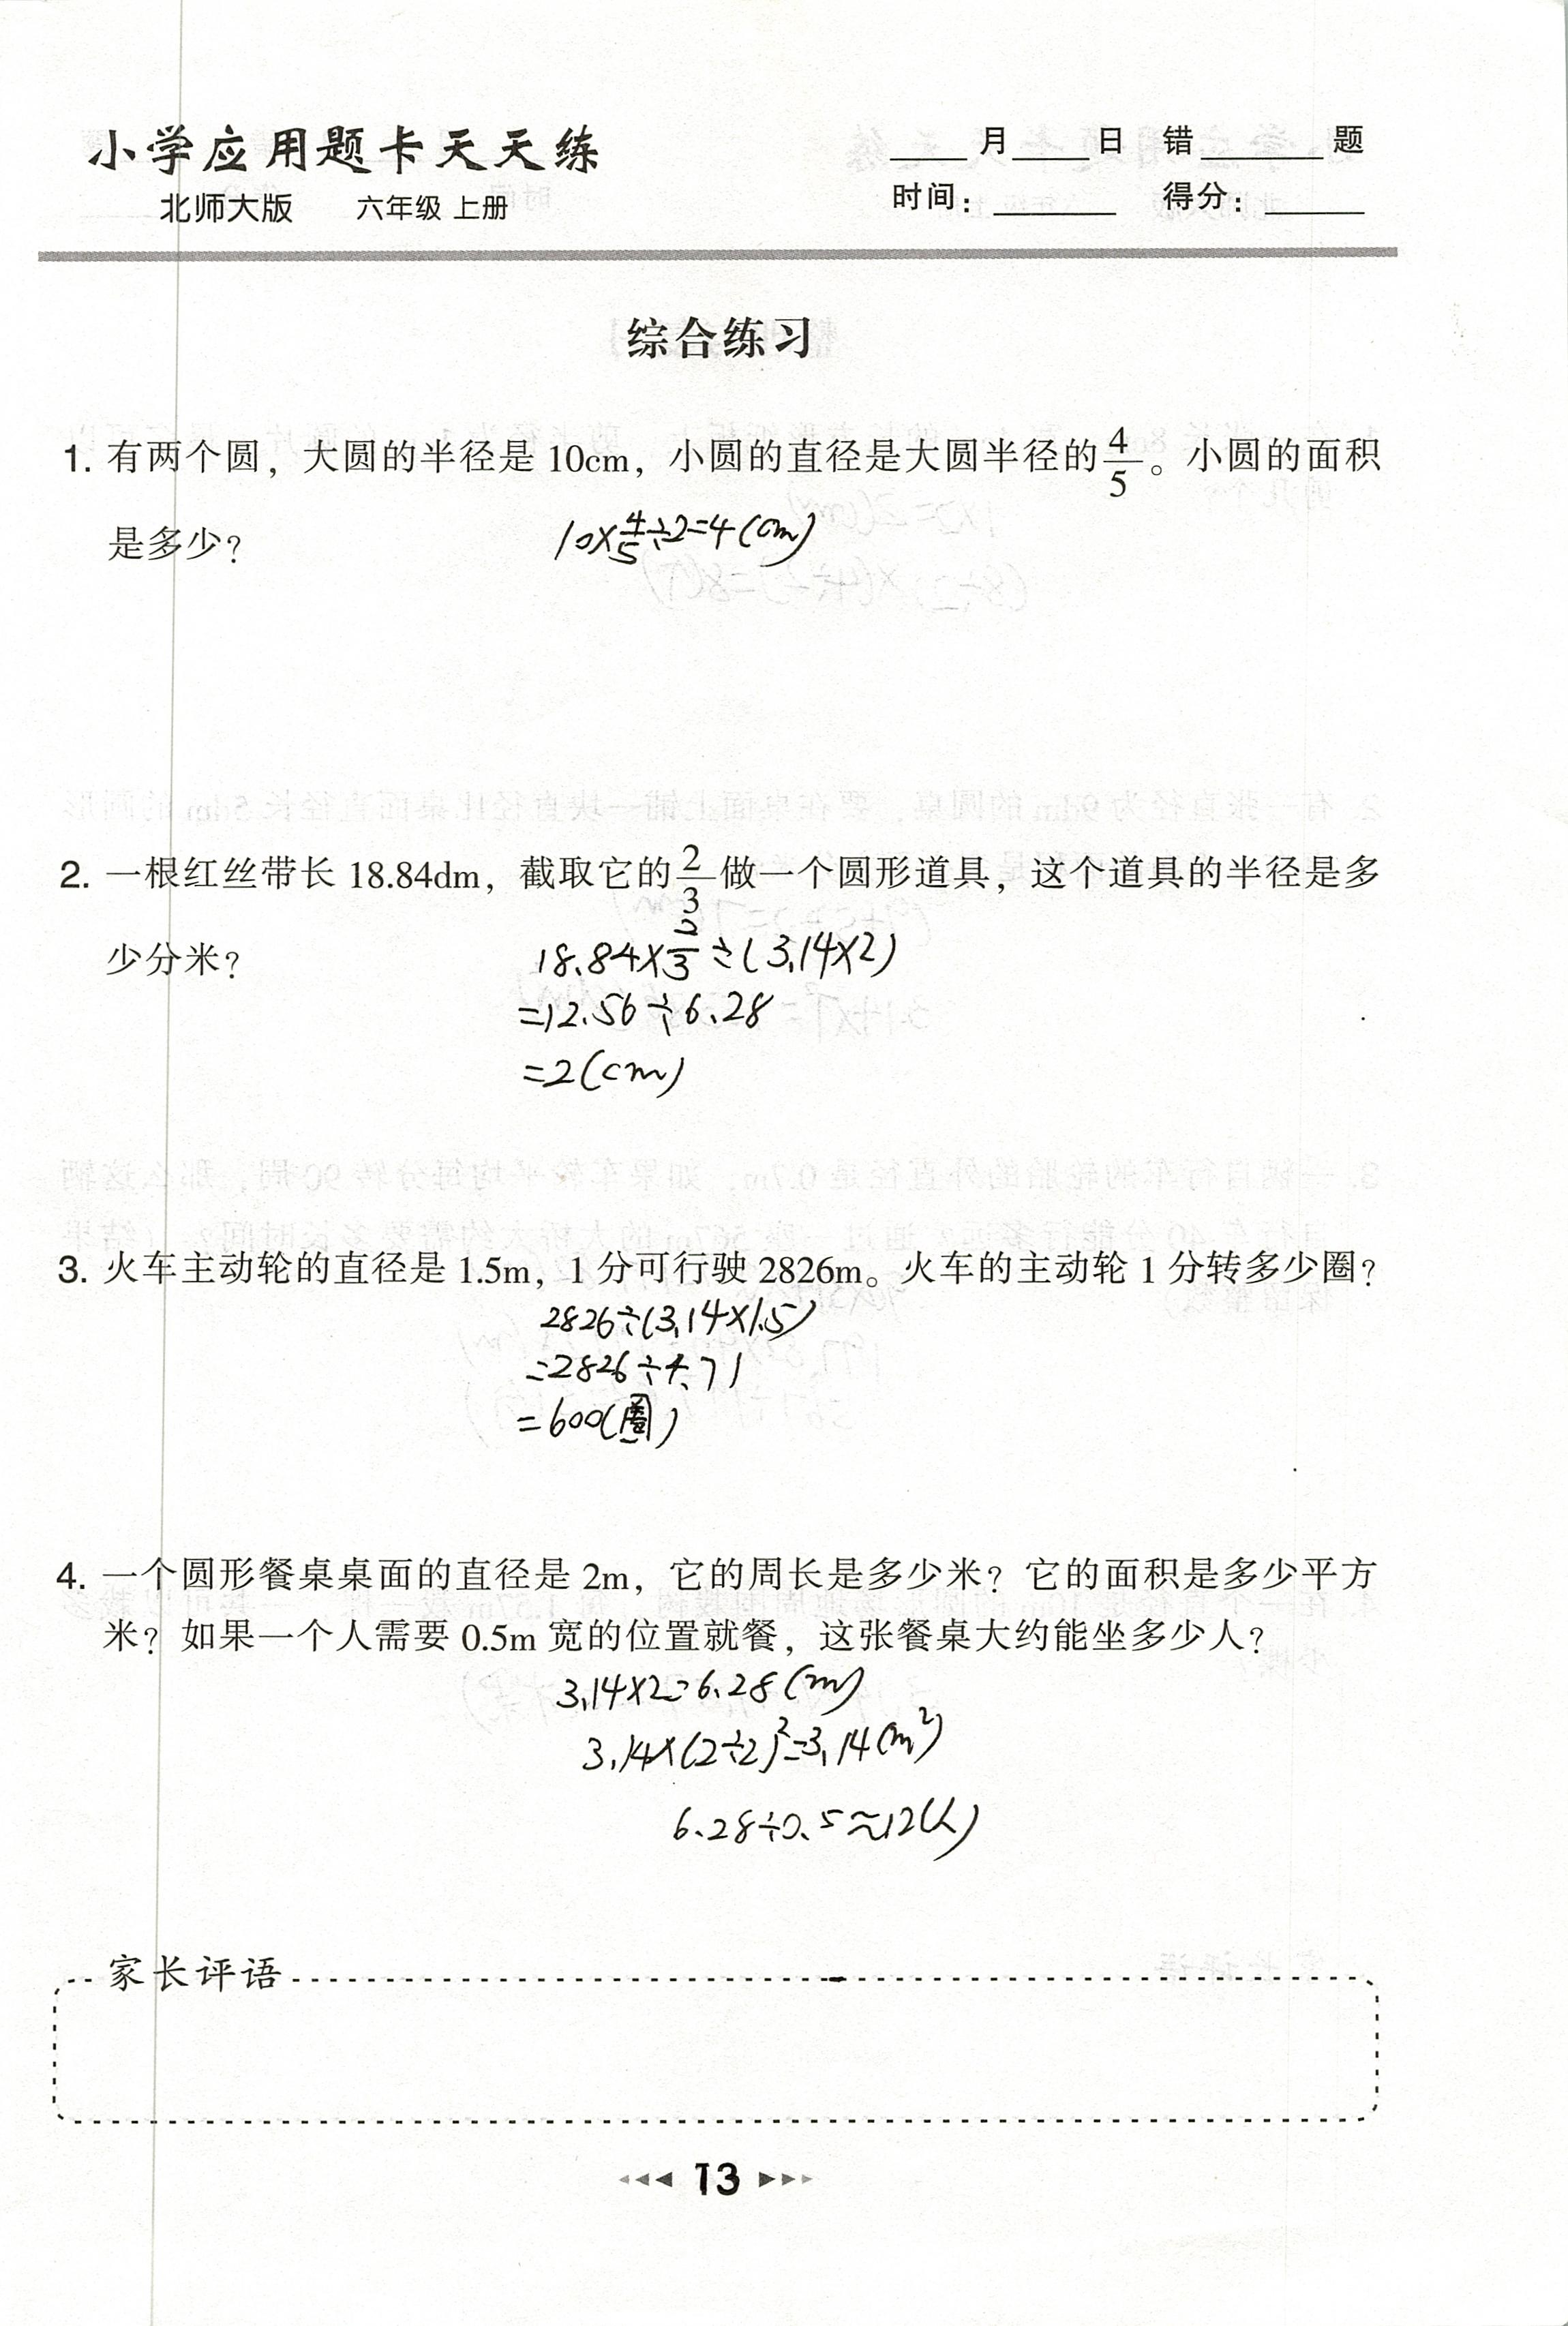 小学应用题卡天天练
北师大版 六年级 上册
____月____日 错______题
时间：______ 得分：_____
综合练习
1. 有两个圆，大圆的半径是 10cm，小圆的直径是大圆半径的4/5。小圆的面积
是多少？
10×4/5÷2=4(cm)
2. 一根红丝带长 18.84dm，截取它的2/3做一个圆形道具，这个道具的半径是多
少分米？
18.84×2/3÷(3.14×2)
=12.56÷6.28
=2(cm)
3. 火车主动轮的直径是 1.5m，1 分可行驶 2826m。火车的主动轮 1 分转多少圈？
2826÷(3.14×1.5)
=2826÷4.71
=600(圈)
4. 一个圆形餐桌桌面的直径是 2m，它的周长是多少米？它的面积是多少平方
米？如果一个人需要 0.5m 宽的位置就餐，这张餐桌大约能坐多少人？
3.14×2=6.28(m)
3.14×(2÷2)²=3.14(m²)
6.28÷0.5≈12(人)
家长评语
13